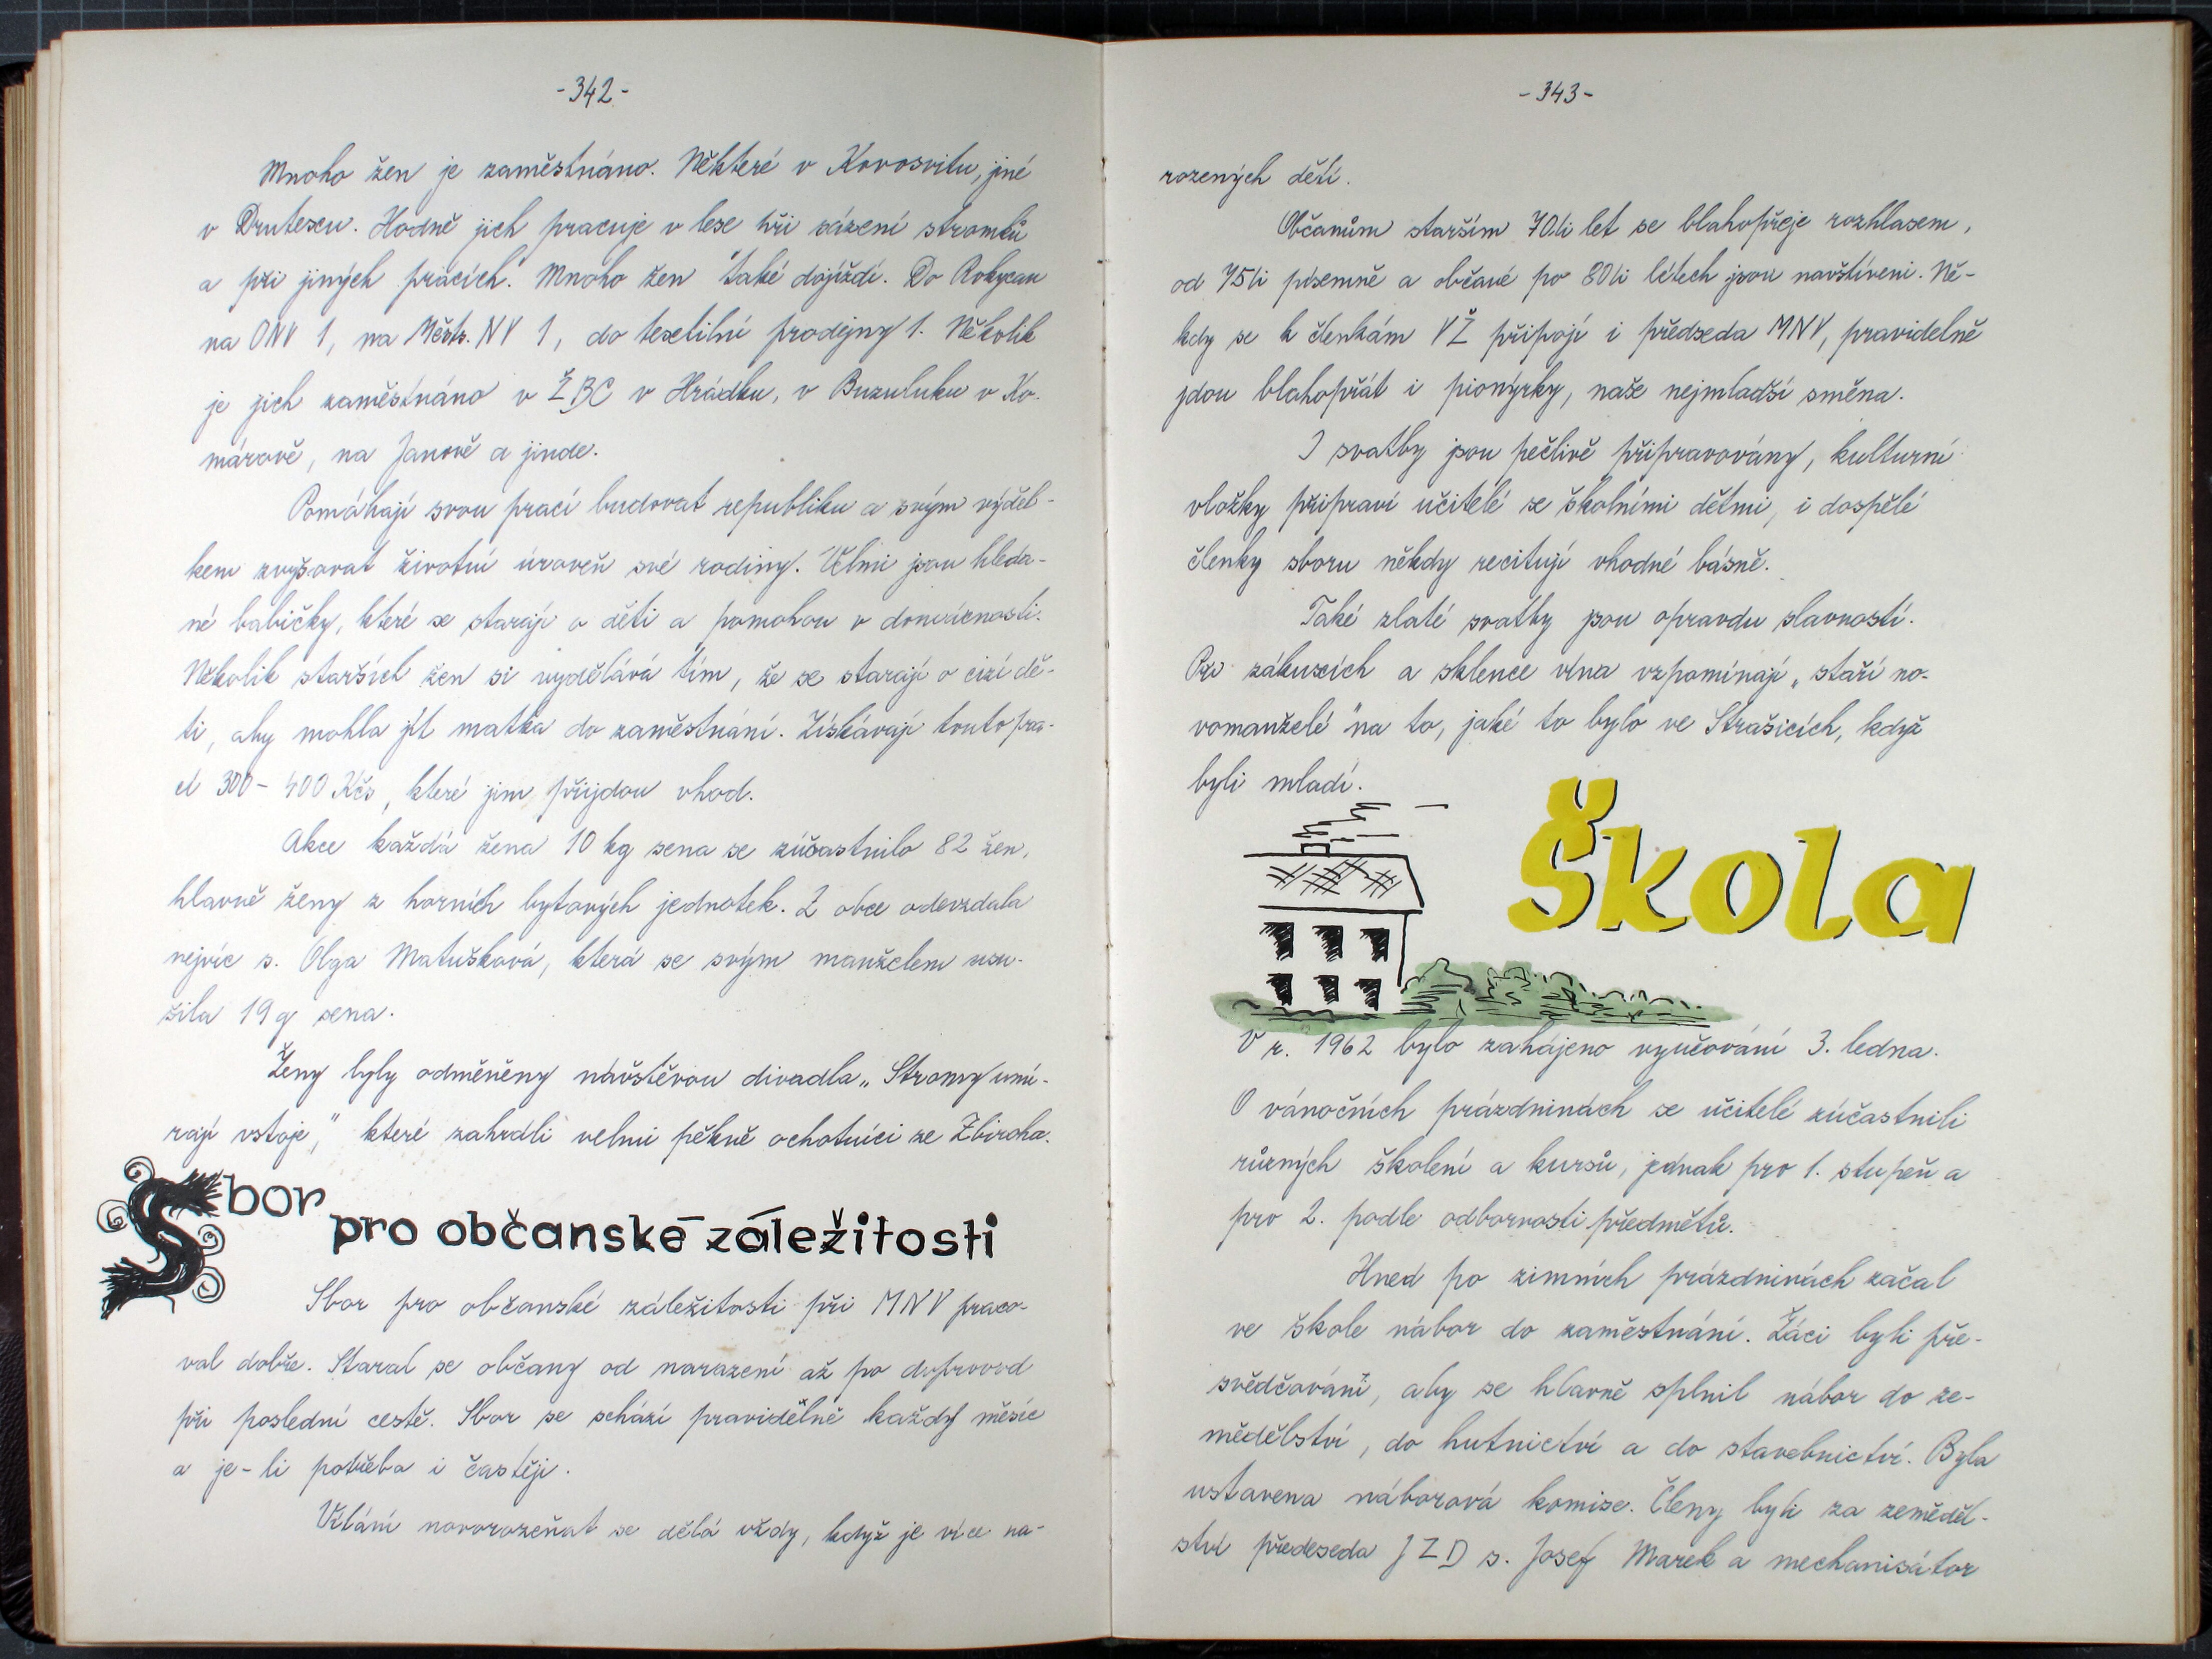 -342-
Mnoho žen je zaměstnáno. Některé v Kovosvitu, jiné
v Drutescu. Hodně jich pracuje v lese při sázení stromků
a při jiných pracích. Mnoho žen také dojíždí. Do Rokycan
na ONV 1, na Městs. NV 1, do textilní prodejny 1. Několik
je jich zaměstnáno v ŽBC v Hrádku, v Buzuluku v Ko-
márově, na Janově a jinde.
Pomáhají svou prací budovat republiku a svým výděl-
kem zvyšovat životní úroveň své rodiny. Velmi jsou hleda-
né babičky, které se starají o děti a pomohou v domácnosti.
Několik starších žen si vydělává tím, že se starají o cizí dě-
ti, aby mohla jít matka do zaměstnání. Získávají touto prá-
cí 300 - 400 Kčs, které jim přijdou vhod.
Akce každá žena 10 kg sena se zúčastnilo 82 žen,
hlavně ženy z horních bytových jednotek. Z obce odevzdala
nejvíc s. Olga Matušková, která se svým manželem usu-
šila 19 q sena.
Ženy byly odměněny návštěvou divadla „Stromy umí-
rají vstoje,“ které zahráli velmi pěkně ochotníci ze Zbiroha.
Sbor pro občanské záležitosti
Sbor pro občanské záležitosti při MNV praco-
val dobře. Staral se občany od narození až po doprovod
při poslední cestě. Sbor se schází pravidělně každý měsíc
a je-li potřeba i častěji.
Vítání novorozeňat se dělá vždy, když je více na-
-343-
rozených dětí.
Občanům starším 70ti let se blahopřeje rozhlasem,
od 75ti písemně a občané po 80ti létech jsou navštíveni. Ně-
kdy se k členkám VŽ připojí i předseda MNV, pravidelně
jdou blahopřát i pionýrky, naše nejmladší směna.
I svatby jsou pečlivě připravovány, kulturní
vložky připraví učitelé se školními dětmi, i dospělé
členky sboru někdy recitují vhodné básně.
Také zlaté svatby jsou opravdu slavností.
Při zákuscích a sklence vína vzpomínají „staří no-
vomanželé“ na to, jaké to bylo ve Strašicích, když
byli mladí.
Škola
V r. 1962 bylo zahájeno vyučování 3. ledna.
O vánočních prázdninách se učitelé zúčastnili
různých školení a kursů, jednak pro 1. stupeň a
pro 2. podle odbornosti předmětů.
Hned po zimních prázdninách začal
ve škole nábor do zaměstnání. Žáci byli pře-
svědčováni, aby se hlavně splnil nábor do ze-
mědělství, do hutnictví a do stavebnictví. Byla
ustavena náborová komise. Členy byli za zeměděl-
ství předseda JZD s. Josef Marek a mechanisátor